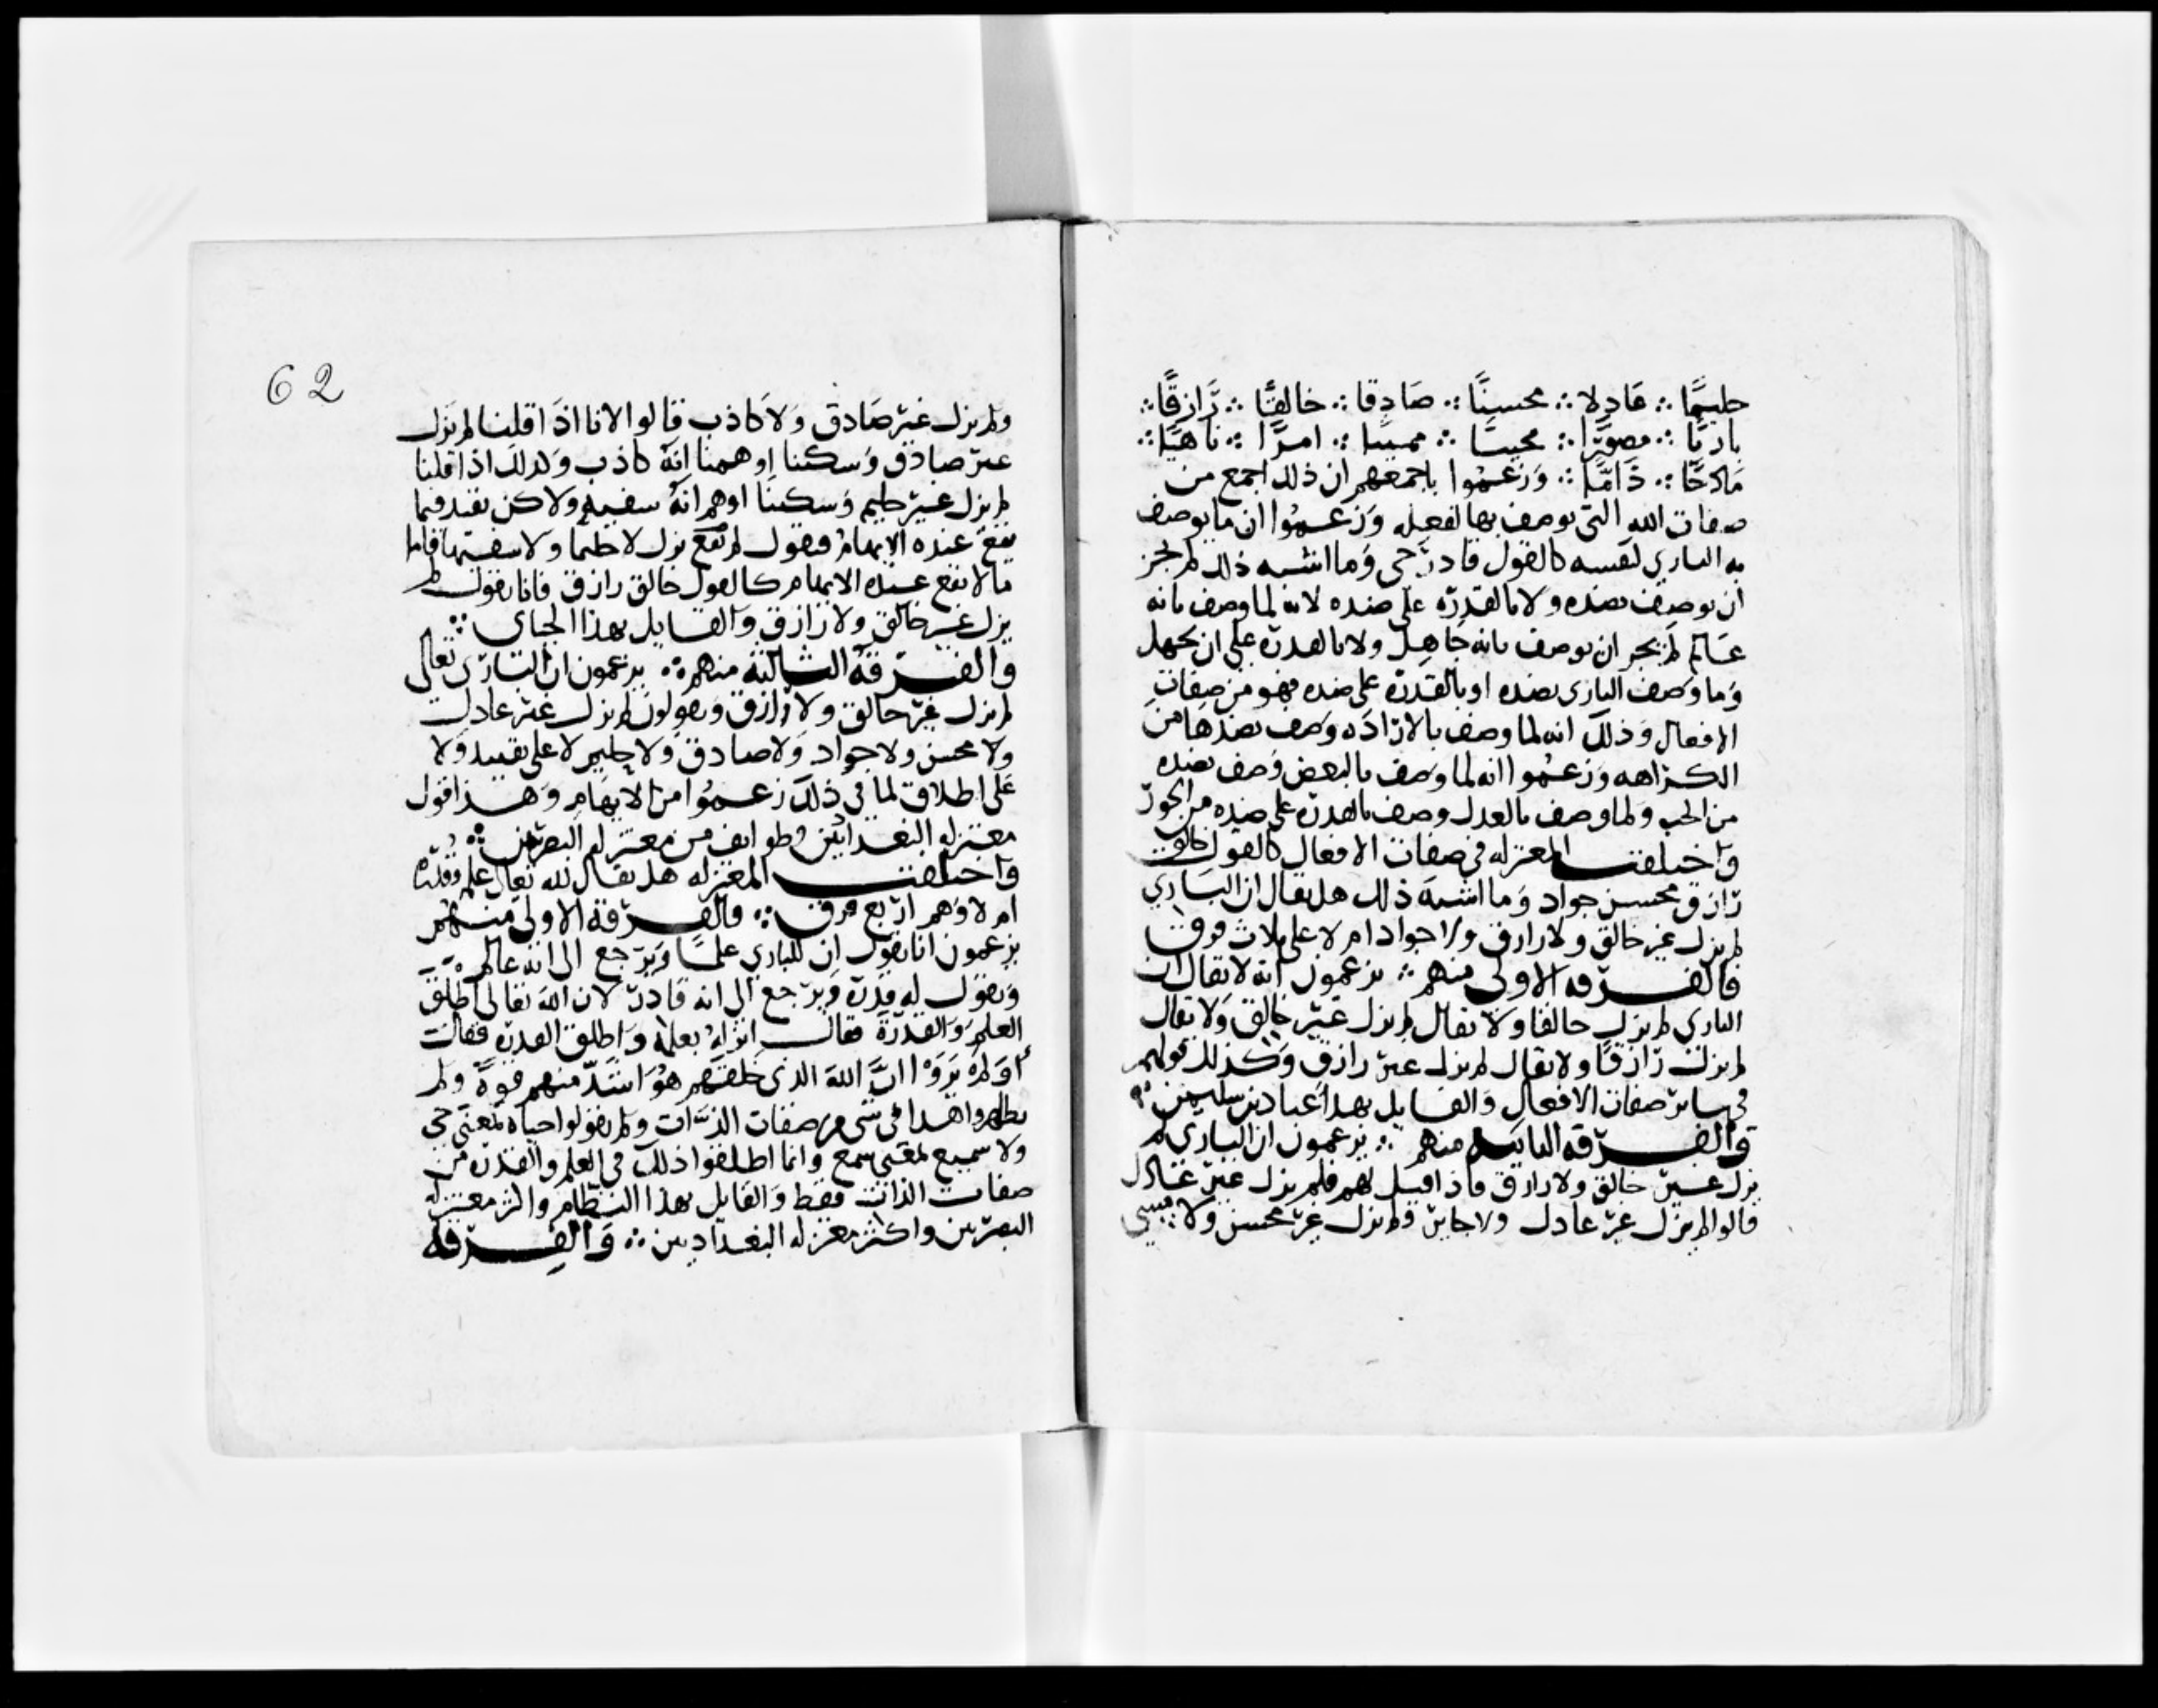 حليمًا ∴ عَادِلا ∴ محسنًا ∴ صَادِقا ∴ خالقًا ∴ رَازقًا ∴
باريًا ∴ مصوّرًا ∴ محييًا ∴ مميتا ∴ امرًا ∴ نَاهيًا ∴
مَادحًا ∴ ذَامًّا ∴ وَزعمُوا باجمعهم ان ذلك اجمع من
صفات الله التي يوصف بها لفعله وَزعمُوا ان ما يوصف
به الباري لنفسه كالقول قادر حي وَما اشبه ذلك لم يجز
ان يوصف بضده ولا بالقدره على ضده لانه لما وصف بانه
عَالم لم يجز ان يوصف بانه جَاهِل ولا بالقدره على ان يجهل
وَما وَصف الباري بضده او بالقدره على ضده فهو من صفات
الافعال وَذلك انه لما وصف بالارادَه وَصف بضدها من
الكراهه وَزعمُوا انه لما وَصف بالبغض وَصف بضده
من الحب وَلما وصف بالعدل وصف بالقدره على ضده من الجور
وَاختلفت المعتزله في صفات الافعال كالقول خالق
رَازق محسن جواد وَما اشبهَ ذلك هل يقال ان البَاري
لم يزل غير خالق ولا رازق ولا جواد ام لا على ثلاث فرق
فالفرقه الاولى منهم ∴ يزعمون انه لا يقال ان
الباري لم يزل خالقا وَلا يقال لم يزل غيْر خالق وَلا يقال
لم يزل رَازقًا ولا يقال لم يزل غير رازق وَكذلك قولهم
في سائر صفات الافعال وَالقايل بهذا عَباد بن سليمن ∴
وَالفرقه الثانيه منهم ∴ يزعمون ان الباري لم
يزل غير خالق ولا رازق فاذا قيل لهم فلم يزل غير عَادل
قالوا لم يزل غير عادل ولا جاير ولم يزل غير محسن ولا مسي
62
ولم يزل غير صَادق وَلا كاذب قالوا لانا اذا قلنا لم يَزل
غير صادق وَسكتنا اوهمنا انه كاذب وَكذلك اذا قلنا
لم يزل غير حليم وَسكتنا اوهم انهُ سفيه ولاكن نقيد فيما
يقعُ عنده الايهَامُ فنقول لم يَزل لا حليما ولا سفيها فاما
ما لا يقع عنده الايهَام كالقول خالق رازق فانا نقول لم
يزل غير خالق ولا رَازق وَالقايل بهذا الجباي ∴
وَالفرقه الثالثه منهم ∴ يزعمون ان البَارِى تعالى
لم يزل غير خالق ولا رَازق وَيقولون لم يزل غير عادل
ولا محسن ولا جواد وَلا صادق وَلا حليم لا على تقييد وَلا
عَلى اطلاق لما في ذلك زعمُوا من الايهام وَهذا قول
معتزله البغداديين وطوايف من معتزله البصريين ∴
وَاختلفت المعتزله هل يقال لله تعالى علم وقدره
ام لا وَهم اربع فرق ∴ فالفرقه الاولى منهم
يزعمون انا نقول ان للباري علمًا وَيرجع الى انه عالم
وَنقول له قدره وَيرجع الى انه قادر لان الله تعالى اطلق
العلم وَالقدرة فقال انزلهُ بعلمه وَاطلق القدره فقال
اَوَلم يَرَوْا انَّ اللهَ الذى خَلقهم هُوَ اشدّ منهم قوةً ولم
يطلقوا هذا في شى من صفات الذات ولم يقولوا حياه بمعنى حي
ولا سميع بمعنى سمع وانما اطلقوا ذلك في العلم والقدره من
صفات الذات فقط وَالقايل بهذا النظّام واكثر معتزله
البصريين واكثر معتزله البغداديين ∴ وَالفرقه